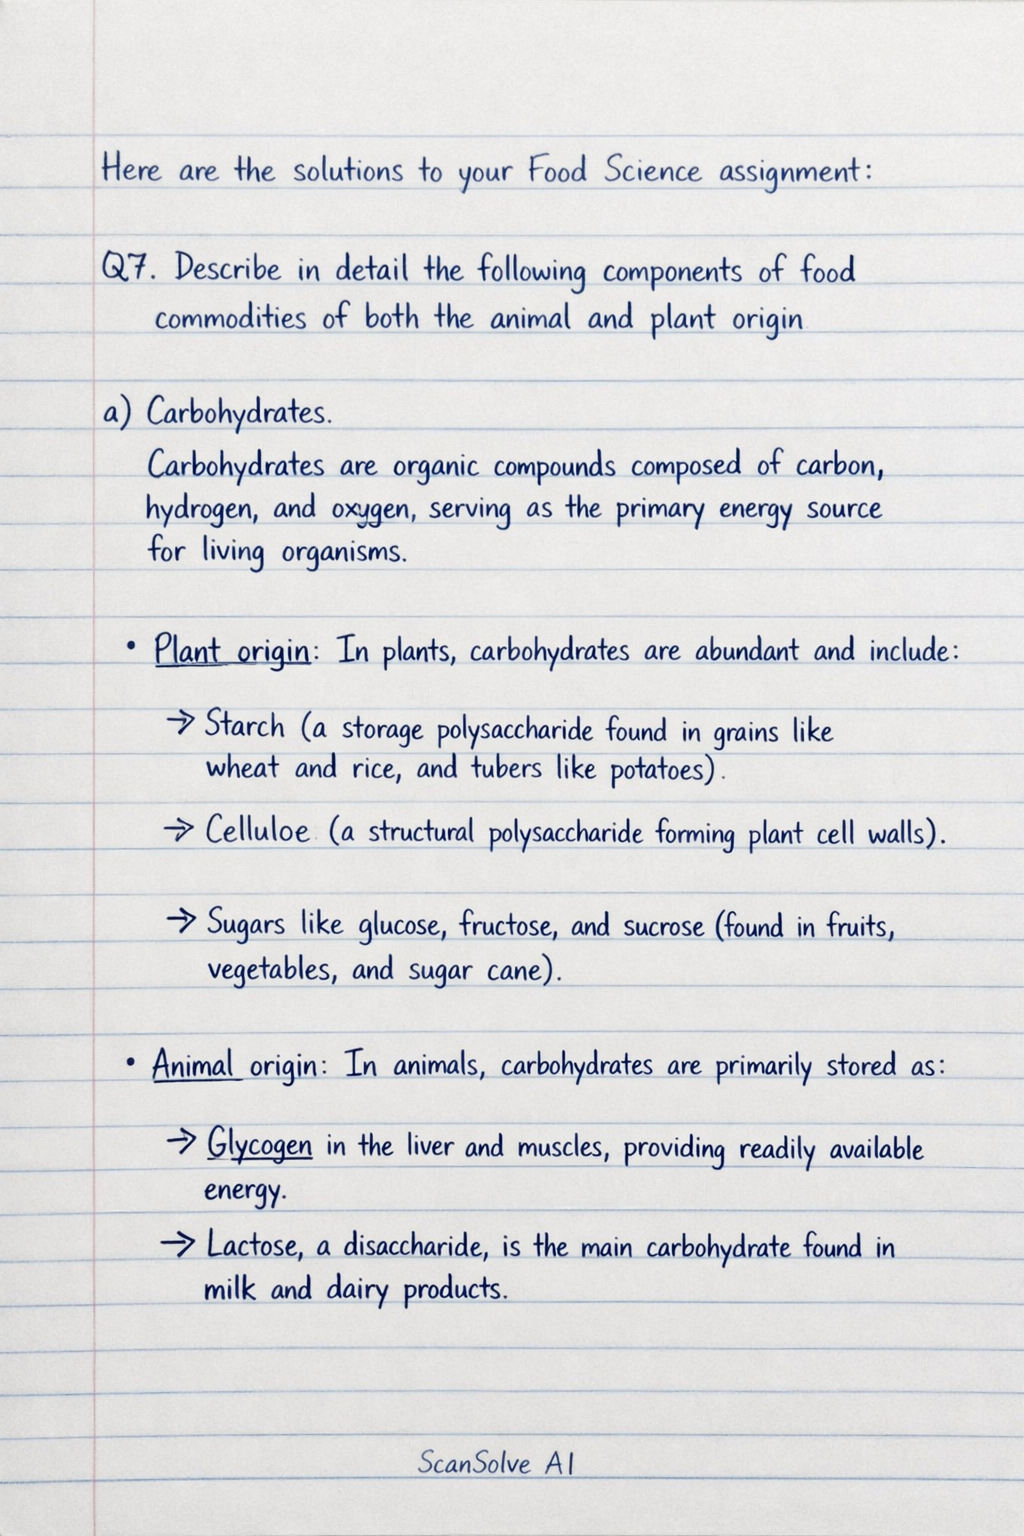 Here are the solutions to your Food Science assignment:
Q7. Describe in detail the following components of food
commodities of both the animal and plant origin
a) Carbohydrates.
Carbohydrates are organic compounds composed of carbon,
hydrogen, and oxygen, serving as the primary energy source
for living organisms.
• Plant origin: In plants, carbohydrates are abundant and include:
→ Starch (a storage polysaccharide found in grains like
wheat and rice, and tubers like potatoes).
→ Celluloe (a structural polysaccharide forming plant cell walls).
→ Sugars like glucose, fructose, and sucrose (found in fruits,
vegetables, and sugar cane).
• Animal origin: In animals, carbohydrates are primarily stored as:
→ Glycogen in the liver and muscles, providing readily available
energy.
→ Lactose, a disaccharide, is the main carbohydrate found in
milk and dairy products.
ScanSolve AI